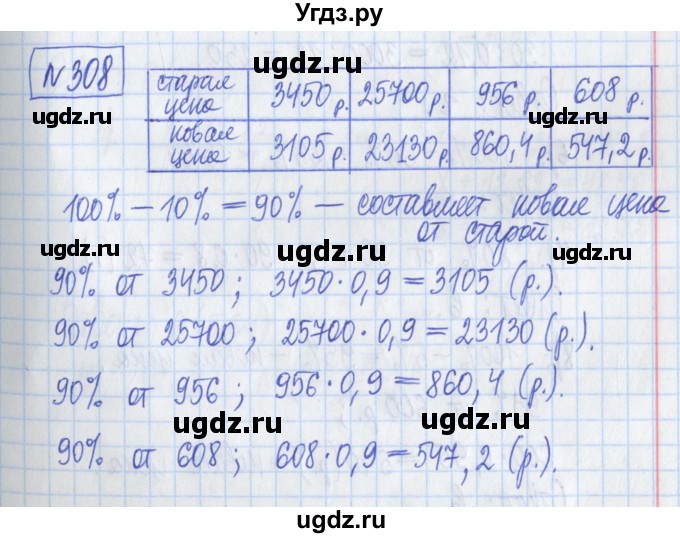 Угдз.ру
№308
старая цена 3450 р. 25700 р. 956 р. 608 р.
новая цена 3105 р. 23130 р. 860,4 р. 547,2 р.
100% – 10% = 90% – составляет новая цена
от старой.
90% от 3450; 3450 · 0,9 = 3105 (р.).
90% от 25700; 25700 · 0,9 = 23130 (р.).
90% от 956; 956 · 0,9 = 860,4 (р.).
90% от 608; 608 · 0,9 = 547,2 (р.).
ugdz.ru ugdz.ru
ugdz.ru ugdz.ru
ugdz.ru
ugdz.ru ugdz.ru
ugdz.ru
ugdz.ru ugdz.ru
ugdz.ru
ugdz.ru ugdz.ru
ugdz.ru